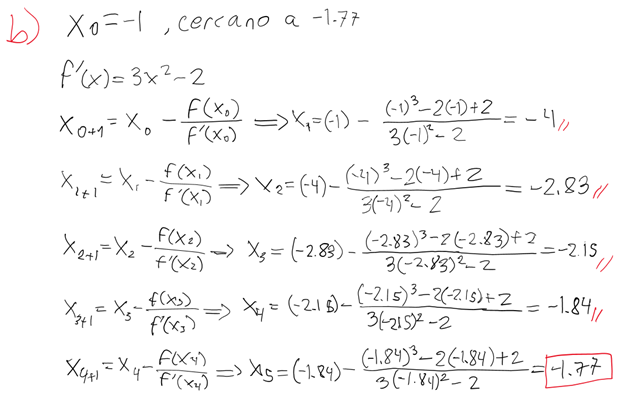 b) X₀=-1 , cercano a -1.77
f'(x)=3x²-2
X₀₊₁=X₀-f(x₀)/f'(x₀) ⟹ X₁=(-1)-((-1)³-2(-1)+2)/(3(-1)²-2)=-4//
X₁₊₁=X₁-f(x₁)/f'(x₁) ⟹ X₂=(-4)-((-4)³-2(-4)+2)/(3(-4)²-2)=-2.83//
X₂₊₁=X₂-f(x₂)/f'(x₂) ⟹ X₃=(-2.83)-((-2.83)³-2(-2.83)+2)/(3(-2.83)²-2)=-2.15//
X₃₊₁=X₃-f(x₃)/f'(x₃) ⟹ X₄=(-2.15)-((-2.15)³-2(-2.15)+2)/(3(-2.15)²-2)=-1.84//
X₄₊₁=X₄-f(x₄)/f'(x₄) ⟹ X₅=(-1.84)-((-1.84)³-2(-1.84)+2)/(3(-1.84)²-2)=-1.77